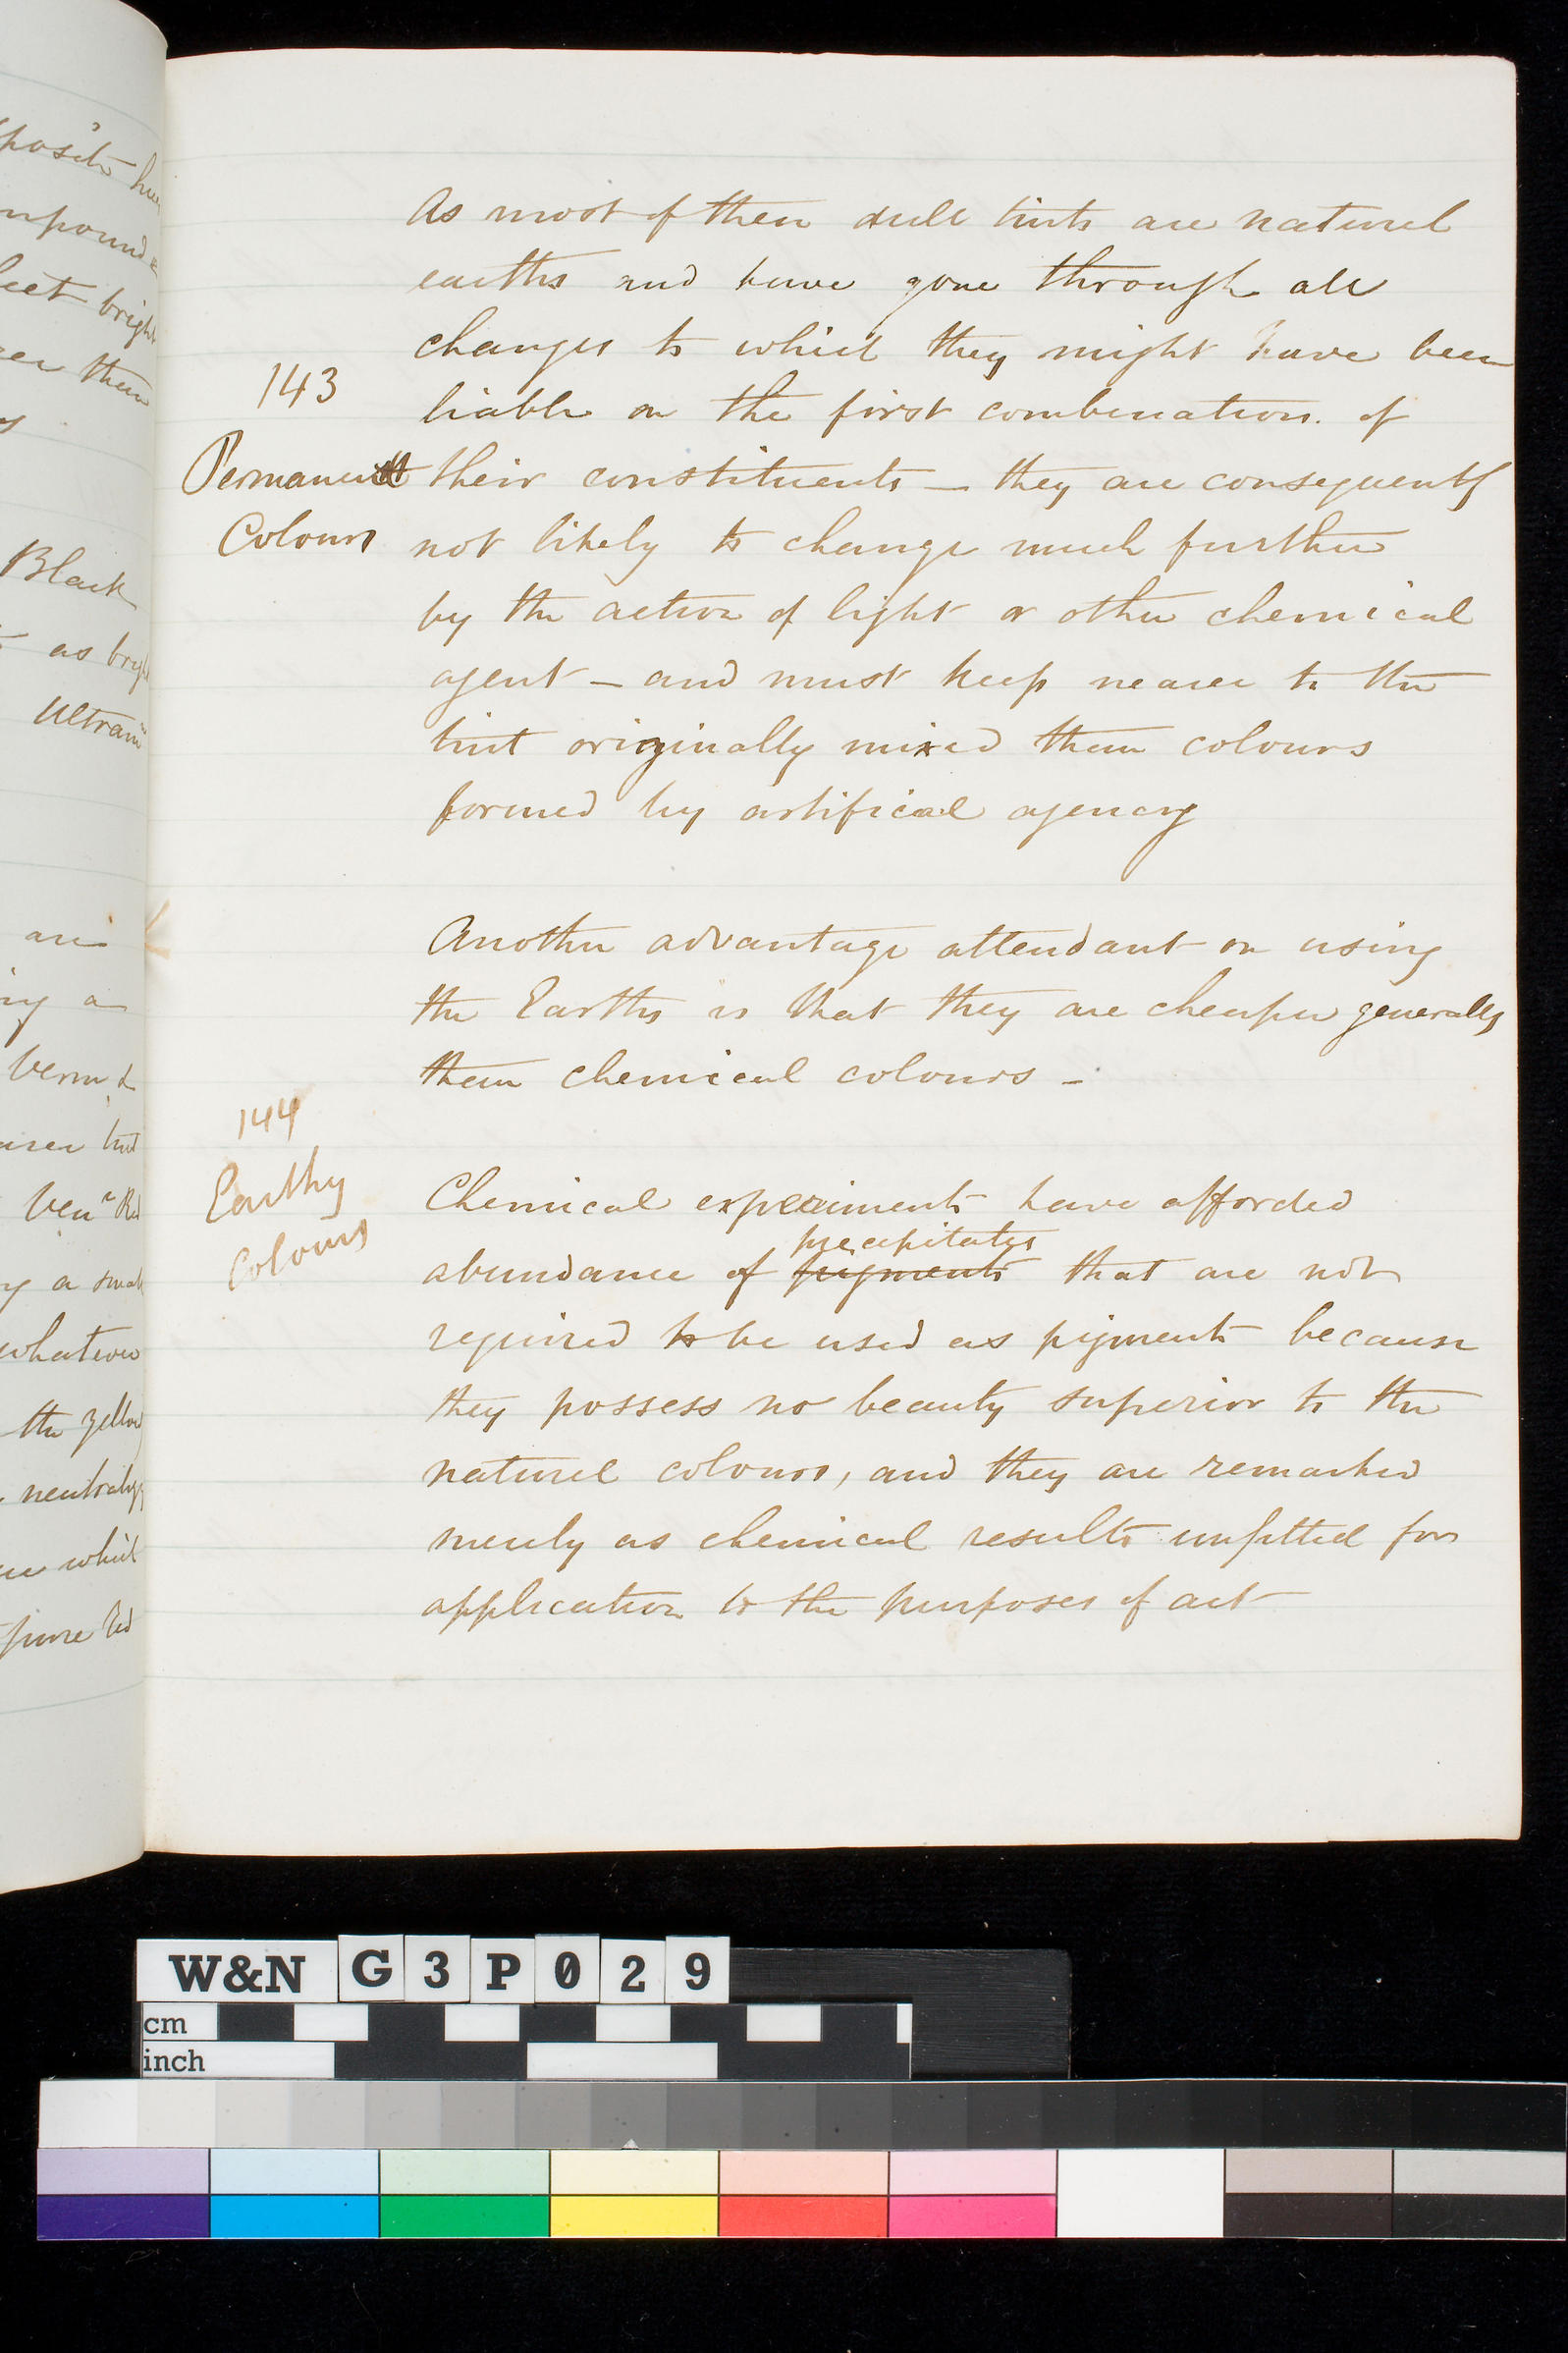 posite hue
mpound
lect bright
er than
Black
as brigh
Ultram
are
ing a
Verm &
user tint
Ven^n Red
ng a small
whatever
the yellow
neutralizg
ue which
pure Red
As most of these dull tints are natural
earths and have gone through all
changes to which they might have been
143
liable on the first combination. of
Permanent their constituents — they are consequently
Colours not likely to change much further
by the action of light or other chemical
agent — and must keep nearer to the
tint originally mixed than colours
formed by artifical agency
Another advantage attendant on using
the Earths is that they are cheaper generally
than chemical colours –
144
Earthy
Colours
Chemical experiments have afforded
precapitates
abundance of pigments that are not
required to be used as pigments because
they possess no beauty superior to the
natural colours, and they are remarked
merely as chemical results unfitted for
application to the purposes of art
W&N G3P029
cm
inch